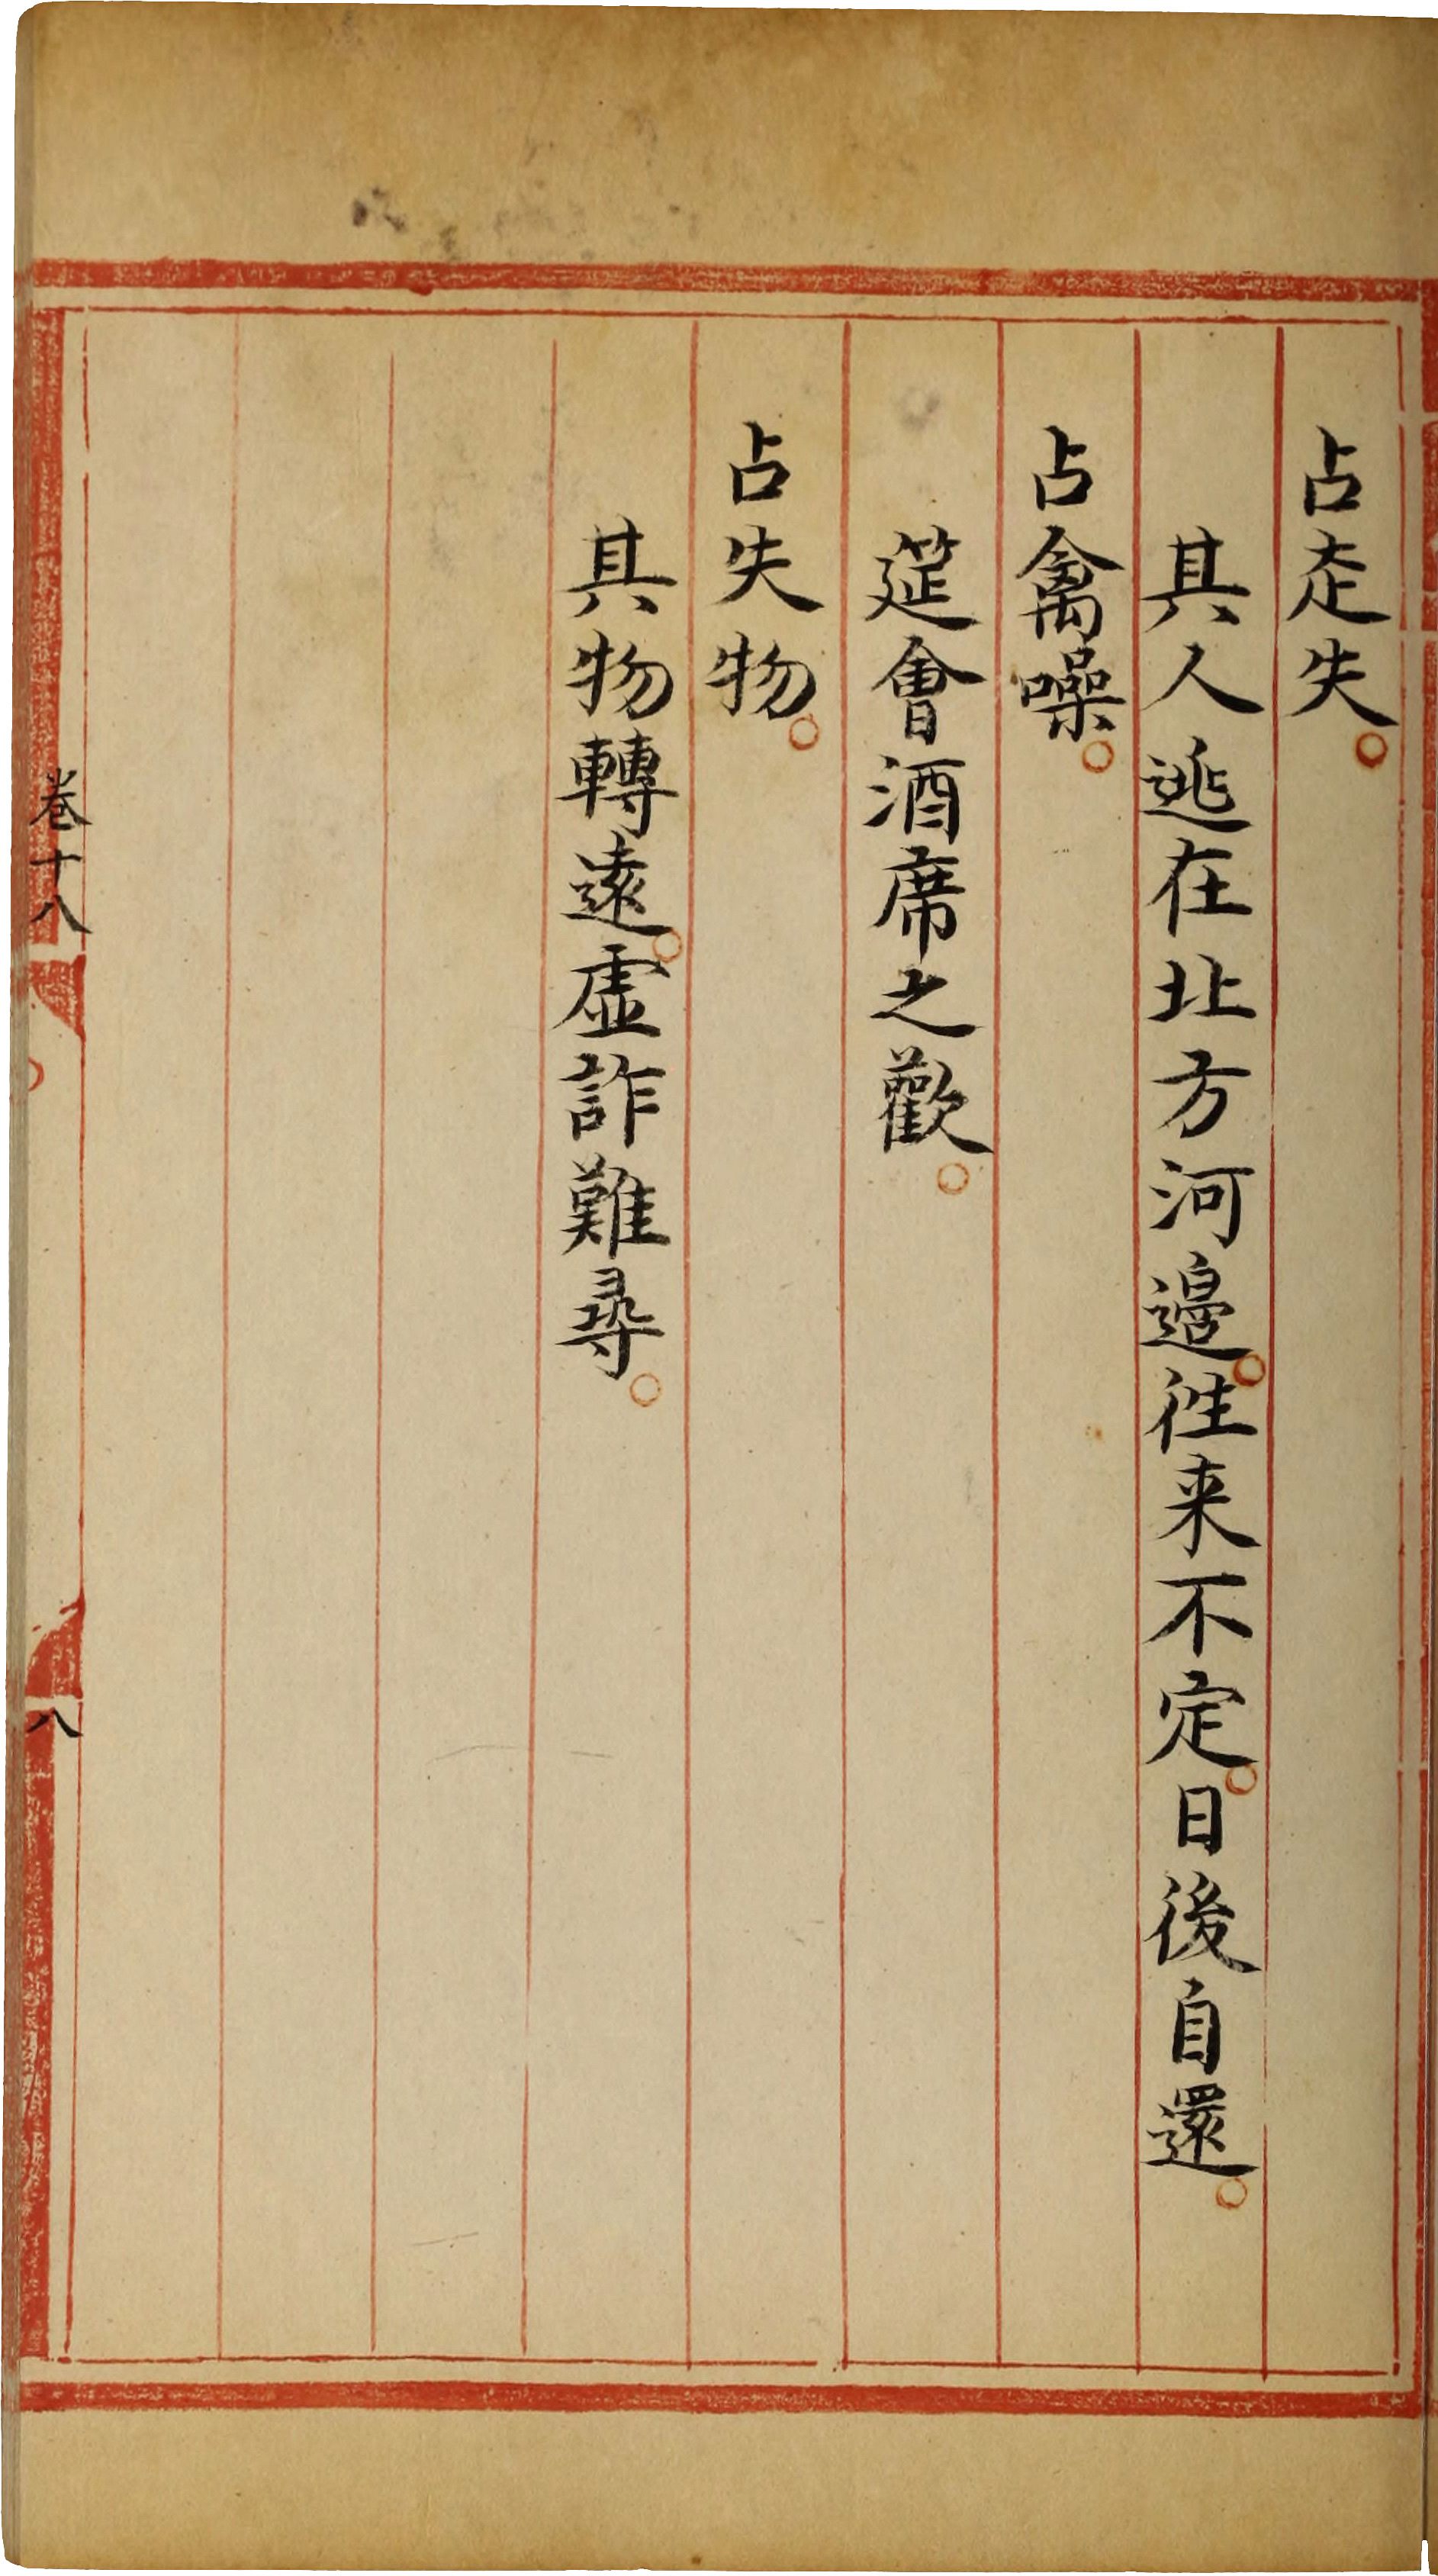 占走失。
其人逃在北方河邊。往来不定。日後自還。
占禽噪。
筵會酒席之歡。
占失物。
其物轉遠。虛詐難尋。
卷十八
八